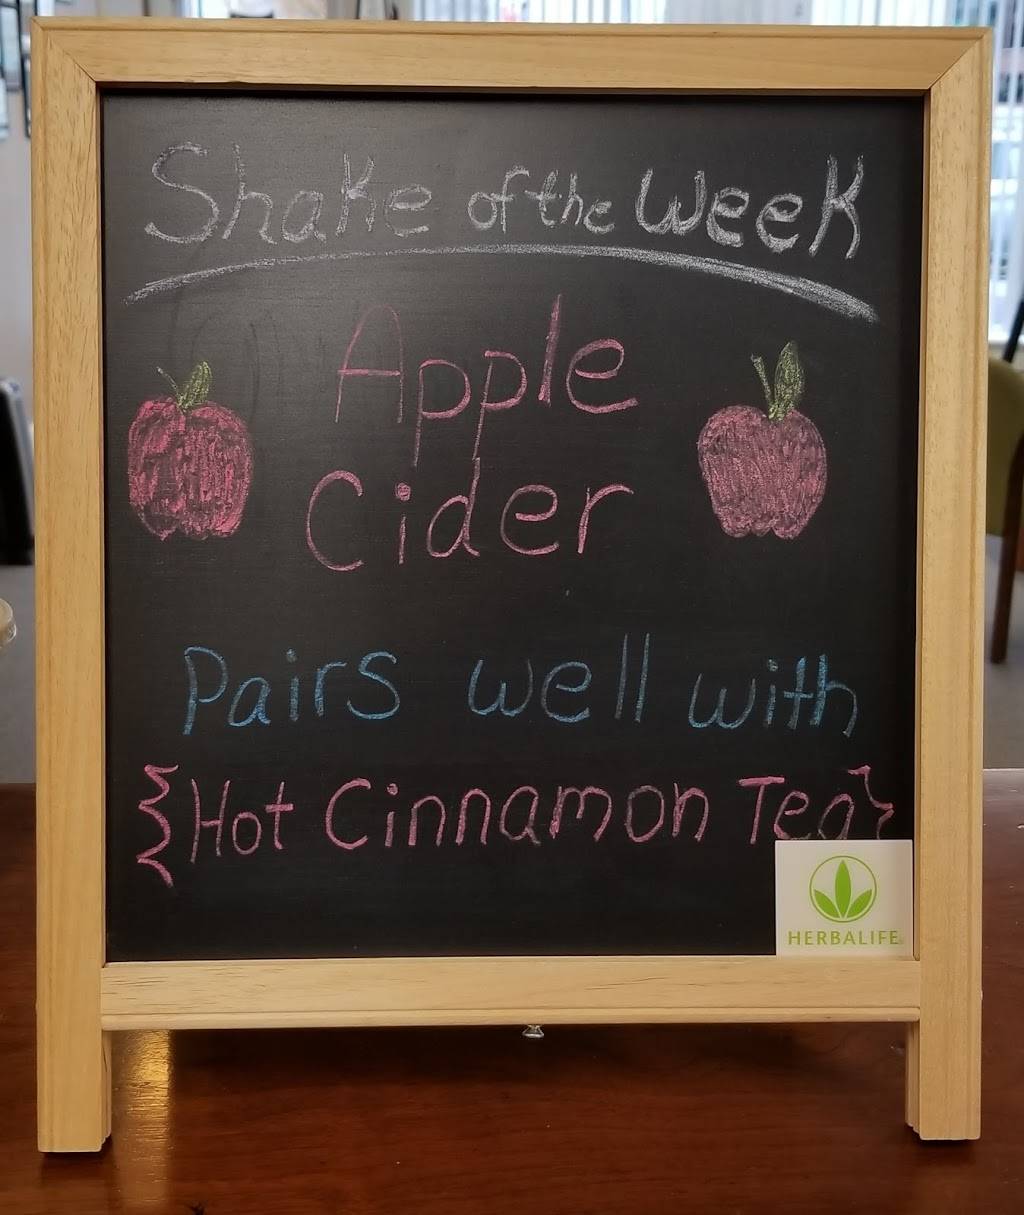 Shake of the Week
Apple
Cider
Pairs well with
{Hot Cinnamon Tea}
HERBALIFE